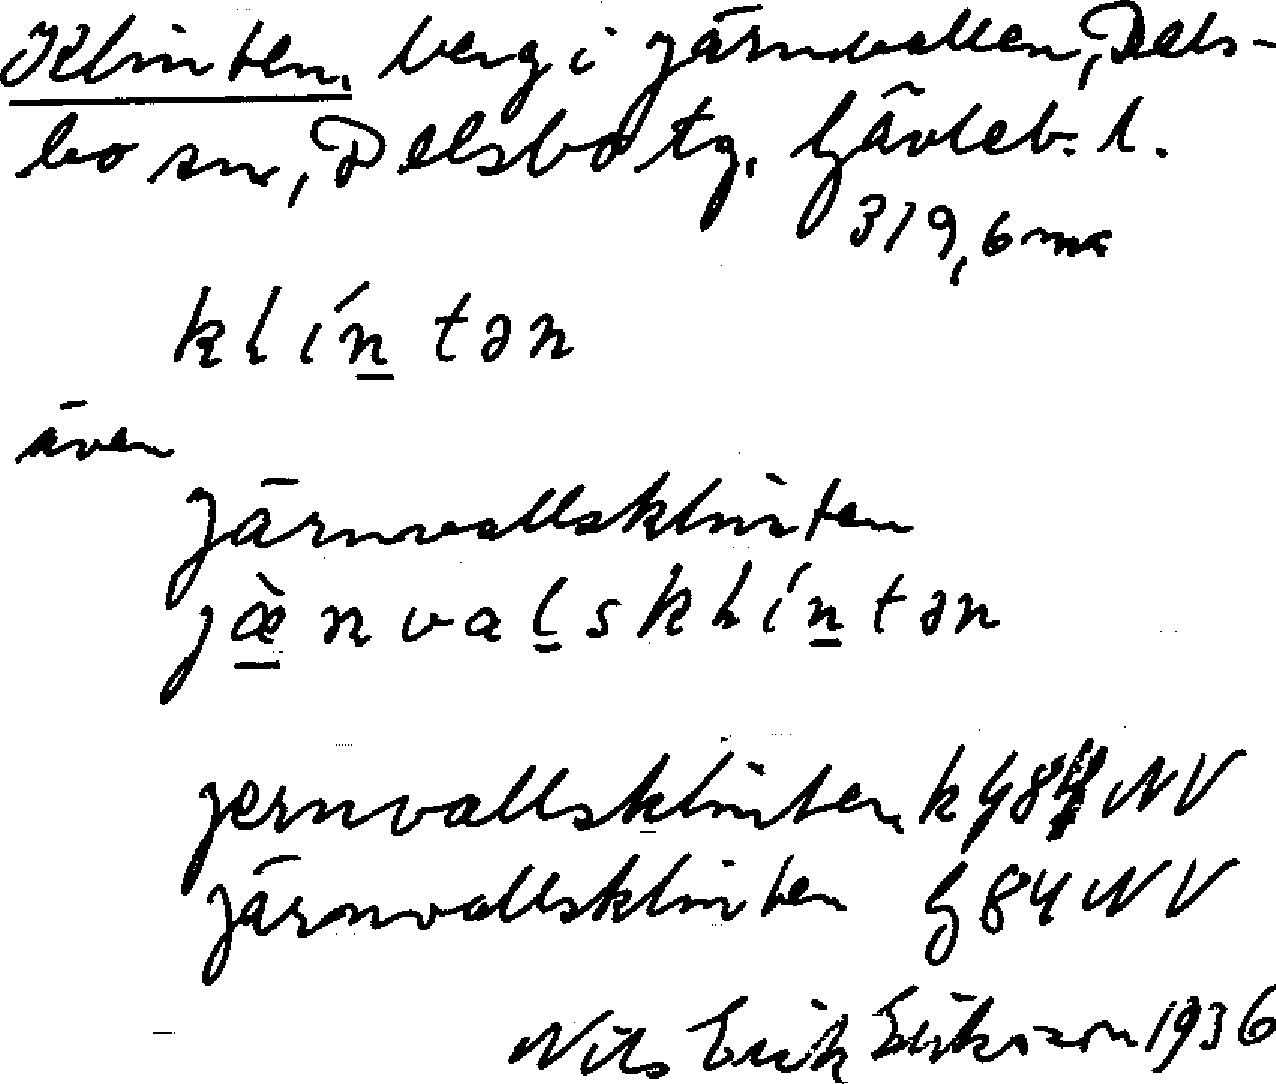 Klinten, berg i Järnvallen, Dels-
bo sn, Delsbo tg. Gävleb. l.
319,6 m
klíntən
även
Järnvallsklinten
jæ̀nvalsklíntən
Jernvallsklinten k G84 NV
Järnvallsklinten G84 NV
Nils Erik Eriksson 1936